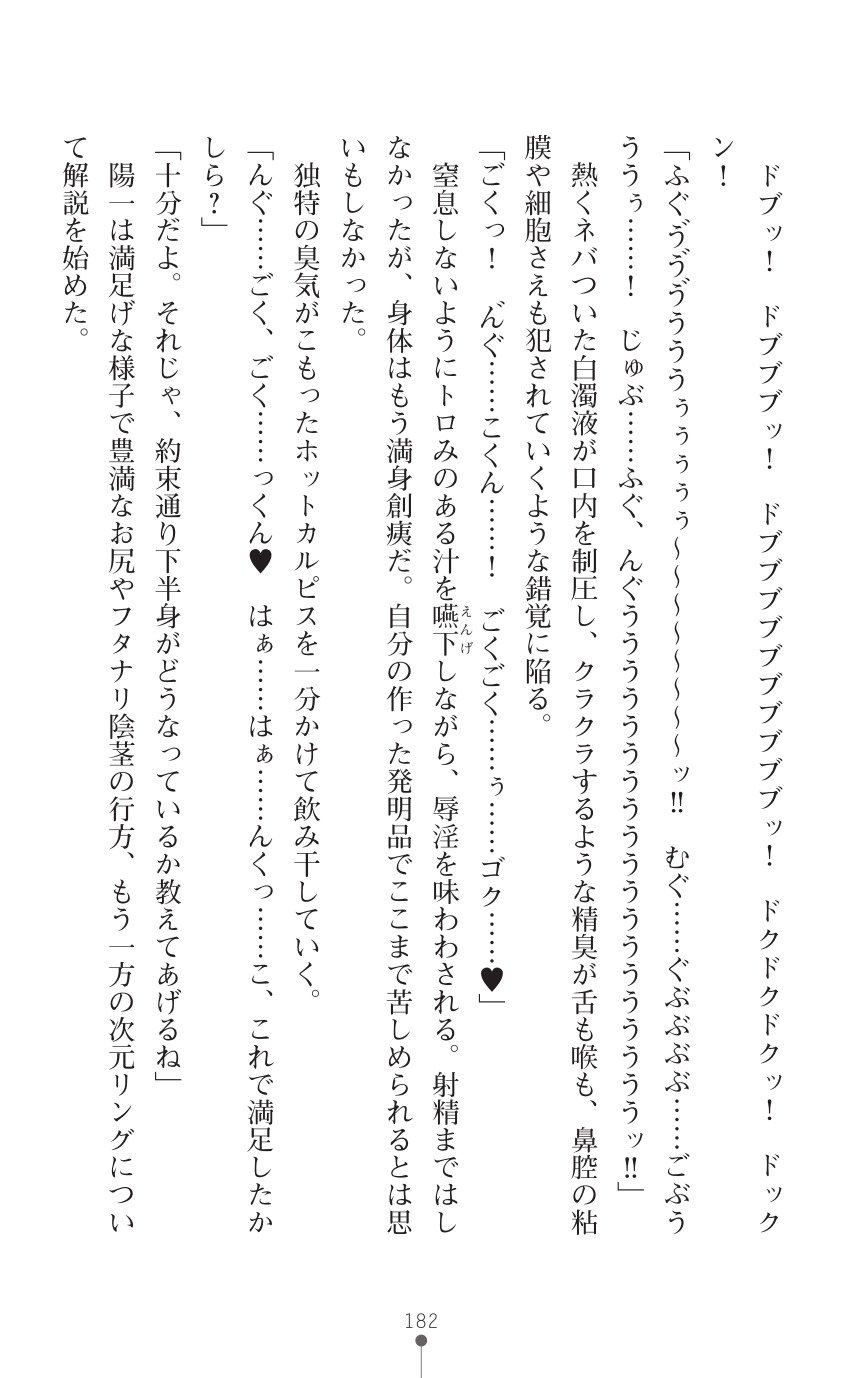 ドブッ！　ドブブブッ！　ドブブブブブブブブブブッ！　ドクドクドクッ！　ドック
ン！
「ふぐゔゔゔうううぅぅぅぅぅ～～～～～～～～ッ!!　むぐ……ぐぶぶぶぶ……ごぶう
ううぅ……！　じゅぶ……ふぐ、んぐうううううううううううううううううッ!!」
熱くネバついた白濁液が口内を制圧し、クラクラするような精臭が舌も喉も、鼻腔の粘
膜や細胞さえも犯されていくような錯覚に陥る。
「ごくっ！　ん゙ぐ……こくん……！　ごくごく……ぅ……ゴク……♥」
窒息しないようにトロみのある汁を嚥下しながら、辱淫を味わわされる。射精まではし
えんげ
なかったが、身体はもう満身創痍だ。自分の作った発明品でここまで苦しめられるとは思
いもしなかった。
独特の臭気がこもったホットカルピスを一分かけて飲み干していく。
「んぐ……ごく、ごく……っくん♥　はぁ……はぁ……んくっ……こ、これで満足したか
しら？」
「十分だよ。それじゃ、約束通り下半身がどうなっているか教えてあげるね」
陽一は満足げな様子で豊満なお尻やフタナリ陰茎の行方、もう一方の次元リングについ
て解説を始めた。
182